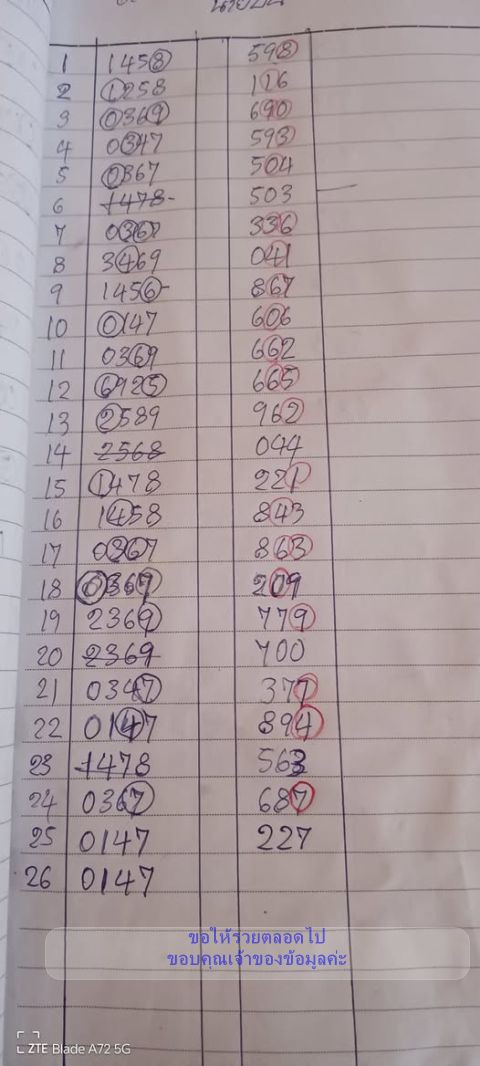 1 1458 598
2 1258 126
3 0369 690
4 0347 593
5 0367 504
6 1478- 503
7 0367 336
8 3469 041
9 1456- 867
10 0147 606
11 0369 662
12 6925 665
13 2589 962
14 2568 044
15 1478 221
16 1458 843
17 0367 863
18 0369 209
19 2369 779
20 2369 700
21 0347 377
22 0147 894
23 1478 563
24 0367 687
25 0147 227
26 0147
ขอให้รวยตลอดไป
ขอบคุณเจ้าของข้อมูลค่ะ
ZTE Blade A72 5G